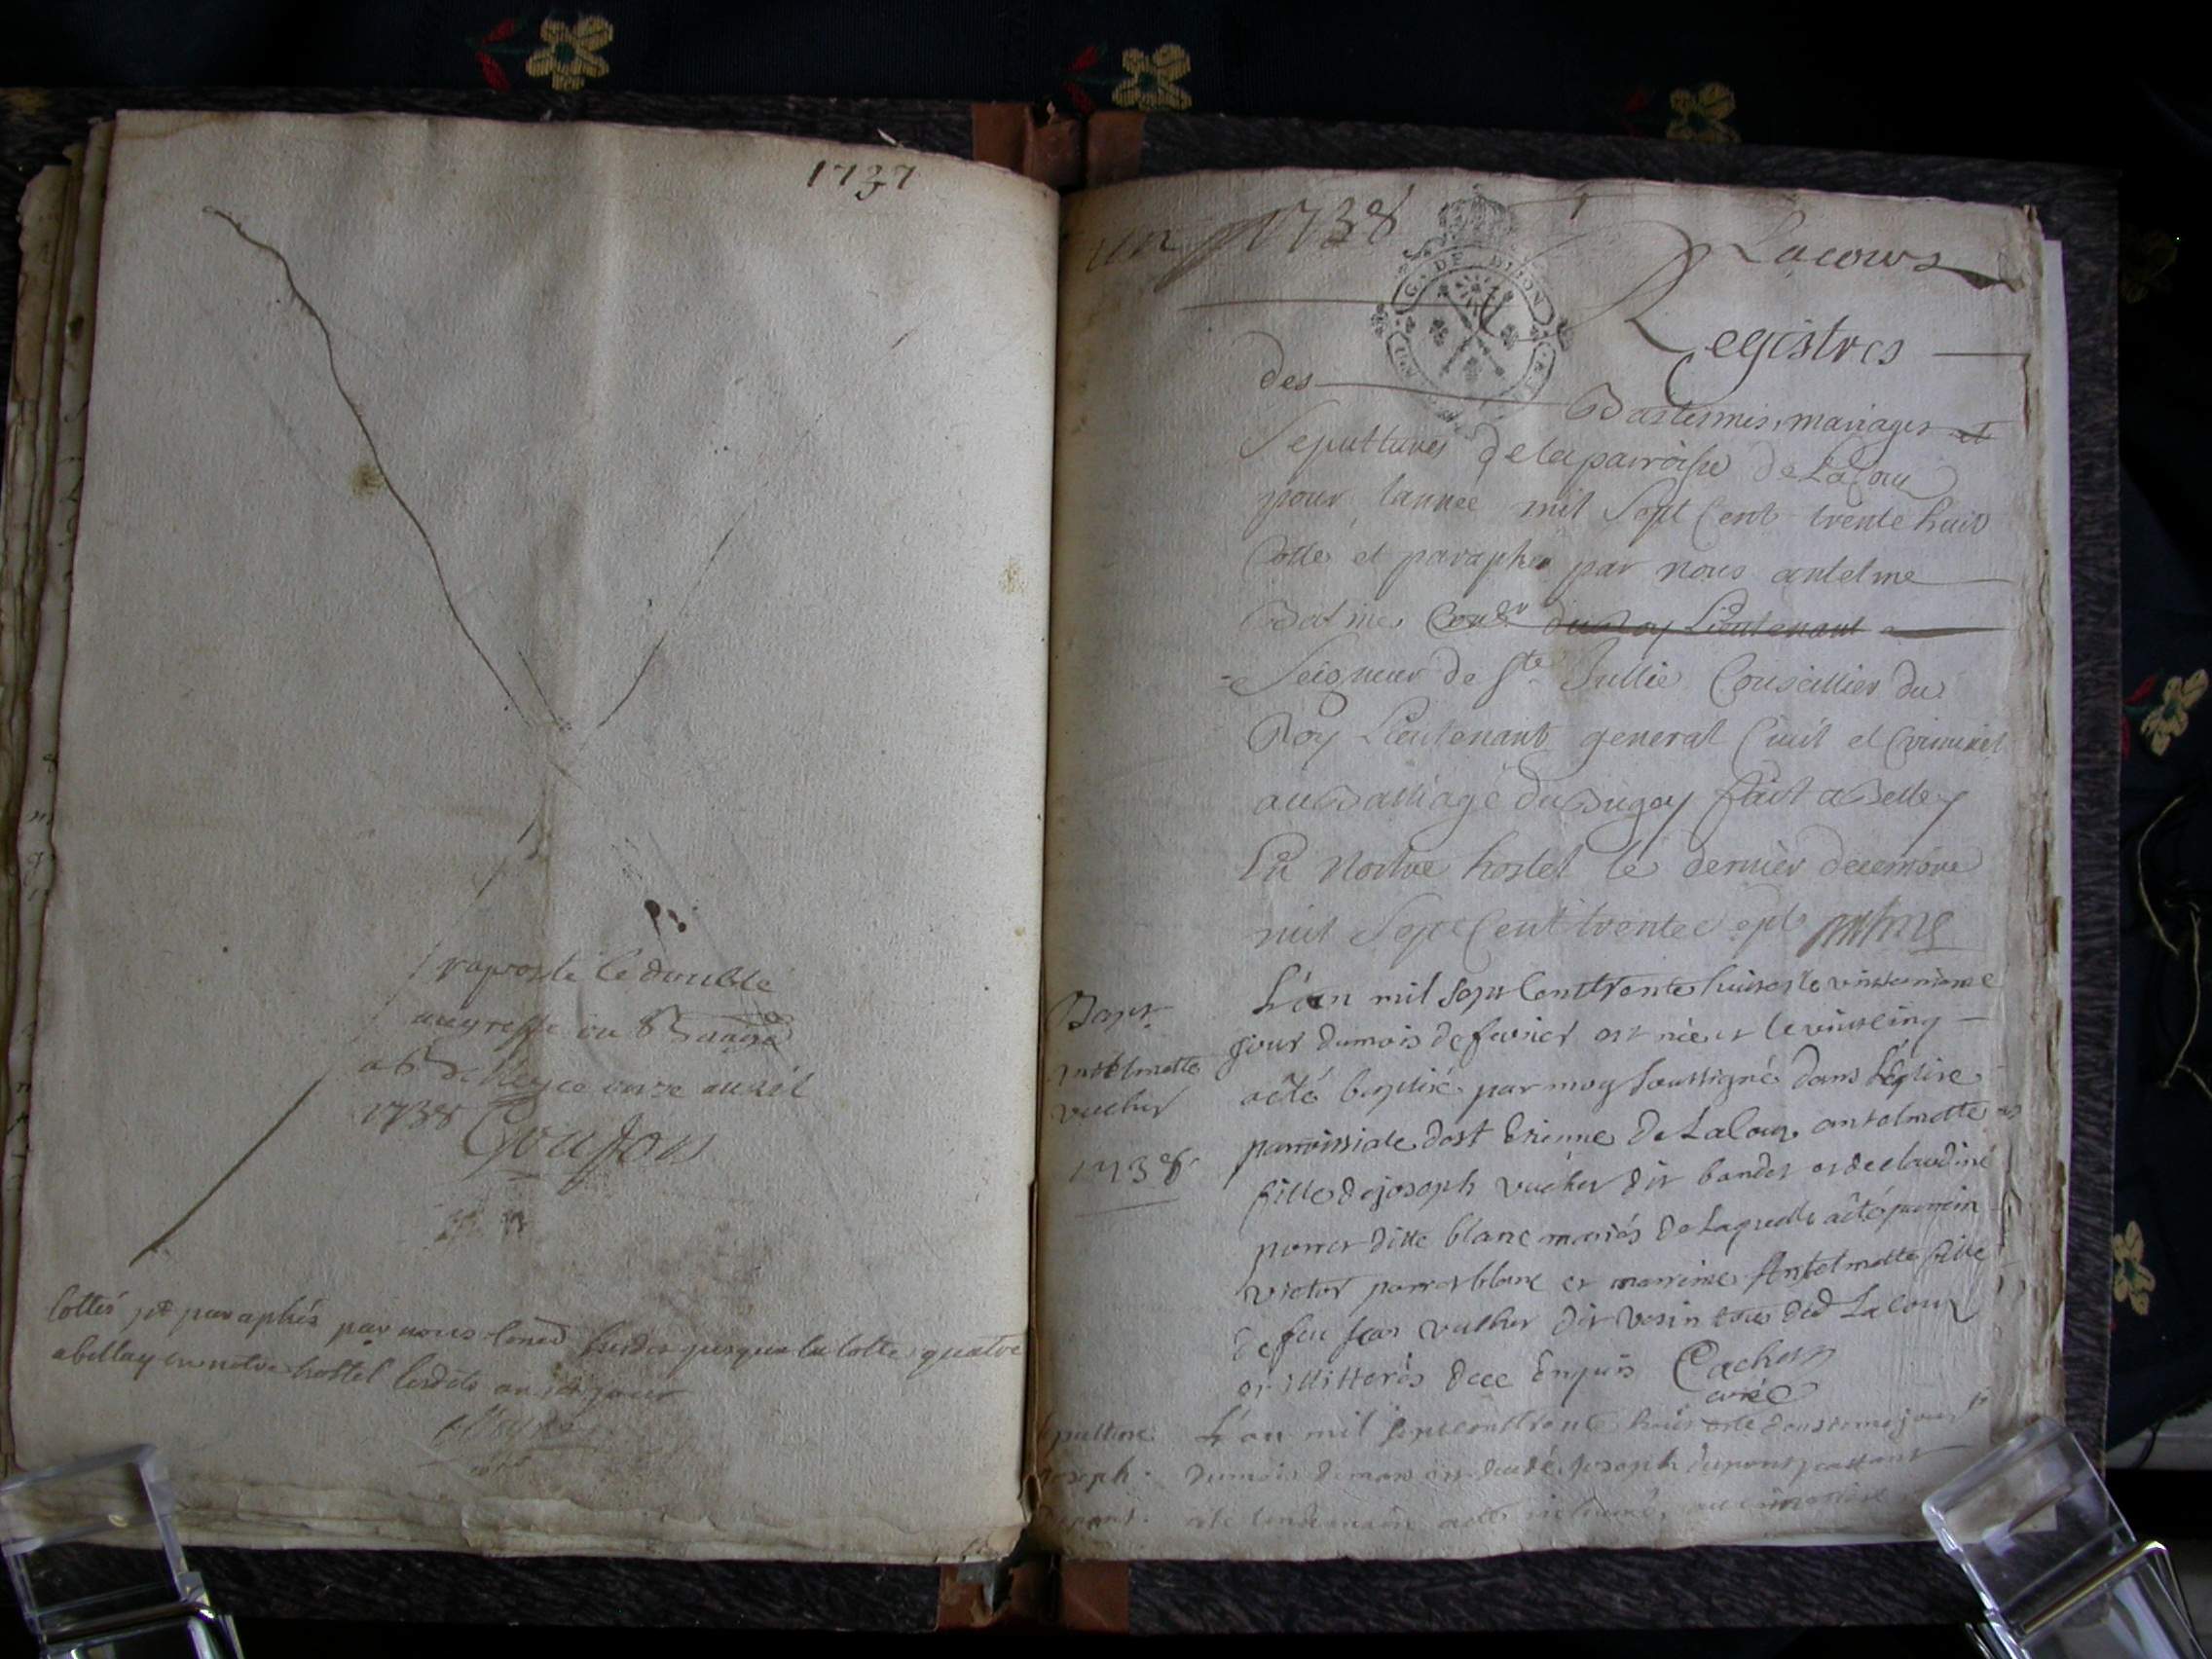 1737
raporté le double
au greffe ou
onze avril
1738 Goujon
Cottés et paraphés par nous jusqua la cotte quatre
a bellay en notre hostel lesdits an et jour
un 1738
Lacoux
G. DE DIJON
Registres
des Batesmes, mariages et
Sepultures de la parroisse de Lacou
pour lannée mil Sept Cent trente huit
Cotté et paraphé par nous antelme
Balme Conser du Roy Lieutenant
Seigneur de Ste Jullie Conseillier du
Roy Lieutenant general Civil et Criminel
au Balliage du Bugey fait a Belley
En Nostre hostel le dernier decembre
mil Sept Cent trente sept
Bapt. L'an mil sept cent trente huit et le vintiemme
jour du mois de fevrier est née et le vint cinq
Antelmette a été baptisé par moy soussigné dans l'église
vucher parroissiale de st Etienne de Lacoux antelmette
1738 fille de joseph vucher dit bandet et de claudine
perret ditte blanc mariés de Laquelle a été parrein
victor perret blanc et marreine Antelmette fille
de feu jean vucher dit vesin tous dud Lacoux
et illitterés de ce enquis Cachet
curé
sepulture L'an mil sept cent trente huit et le jour
joseph du mois de mars est decedé joseph dupont
dupont et le lendemain a été inhumé au cimetiere